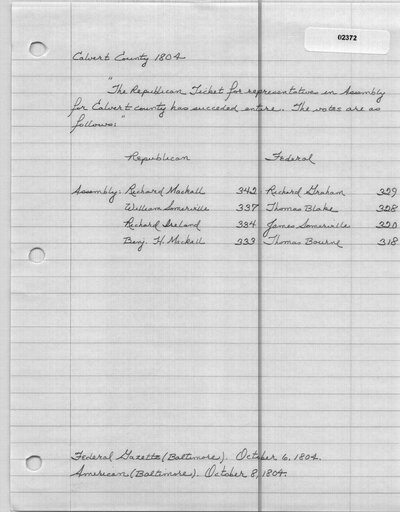 02372
Calvert County 1804
"The Republican Ticket for representatives in Assembly
for Calvert county has succeded entire. The votes are as
follows:"
Republican Federal
Assembly: Richard Mackall 342 Richard Graham 329
William Somerville 337 Thomas Blake 328
Richard Ireland 334 James Somerville 320
Benj. H. Mackall 333 Thomas Bourne 318
Federal Gazette (Baltimore). October 6, 1804.
American (Baltimore). October 8, 1804.